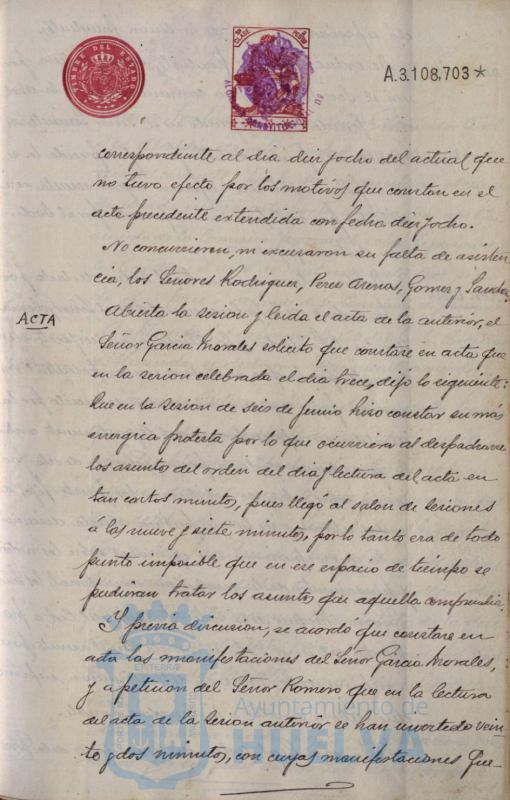 TIMBRE DEL ESTADO
A.3.108,703*
correspondiente al dia diez y ocho del actual que
no tuvo efecto por los motivos que constan en el
acta precedente extendida con fecha diez y ocho.
No concurrieron, ni excusaron su falta de asisten
cia, los Señores Rodriguez, Perez Arenas, Gomez y Sanchez
ACTA
Abierta la sesion y leida el acta de la anterior, el
Señor Garcia Morales solicitó que constase en acta que
en la sesion celebrada el dia trece, dijo lo siguiente:
Que en la sesion de seis de Junio hizo constar su más
energica protesta por lo que ocurriera al despacharse
los asunto del orden del dia y lectura del acta en
tan cortos minutos, pues llegó al salon de sesiones
á las nueve y siete minutos, por lo tanto era de todo
punto imposible que en ese espacio de tiempo se
pudieran tratar los asuntos que aquella comprendia.
Y previa discusion, se acordó que constase en
acta las manifestaciones del Señor Garcia Morales,
y a peticion del Señor Romero que en la lectura
del acta de la sesion anterior se han invertido vein-
te y dos minutos, con cuyas manifestaciones que-
Ayuntamiento de
HUELVA